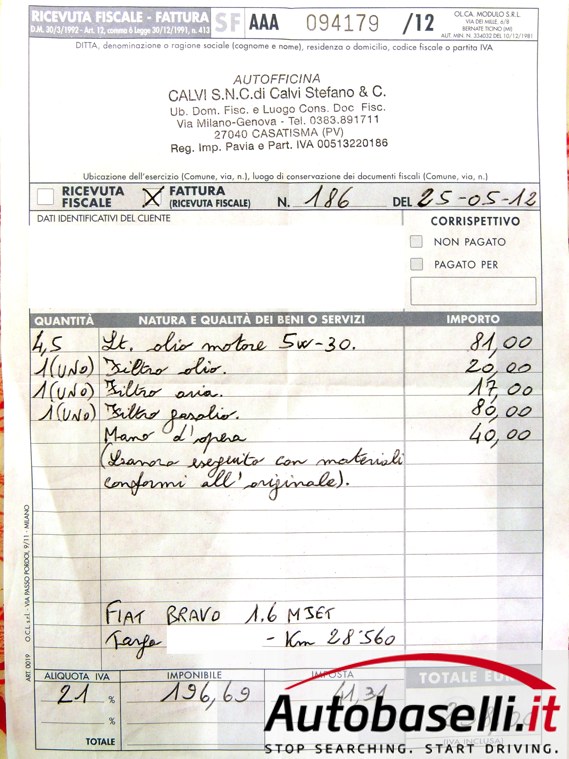 RICEVUTA FISCALE - FATTURA SF AAA 094179 /12
D.M. 30/3/1992 - Art. 12, comma 6 Legge 30/12/1991, n. 413
OL.CA. MODULO S.R.L.
VIA DEI MILLE, 6/8
BERNATE TICINO (MI)
AUT. MIN. N. 334032 DEL 10/12/1981
DITTA, denominazione o ragione sociale (cognome e nome), residenza o domicilio, codice fiscale o partita IVA
AUTOFFICINA
CALVI S.N.C. di Calvi Stefano & C.
Ub. Dom. Fisc. e Luogo Cons. Doc Fisc.
Via Milano-Genova - Tel. 0383.891711
27040 CASATISMA (PV)
Reg. Imp. Pavia e Part. IVA 00513220186
Ubicazione dell'esercizio (Comune, via, n.), luogo di conservazione dei documenti fiscali (Comune, via, n.)
RICEVUTA FISCALE
X FATTURA (RICEVUTA FISCALE)
N. 186 DEL 25-05-12
DATI IDENTIFICATIVI DEL CLIENTE
CORRISPETTIVO
NON PAGATO
PAGATO PER
QUANTITÀ NATURA E QUALITÀ DEI BENI O SERVIZI IMPORTO
4,5 Lt. olio motore 5W-30. 81,00
1 (UNO) Filtro olio. 20,00
1 (UNO) Filtro aria. 17,00
1 (UNO) Filtro gasolio. 80,00
Mano d'opera 40,00
eseguito con materiali
conformi all'originale).
FIAT BRAVO 1.6 MJET
Targa - Km 28'560
ART. 0019 O.C.L. s.r.l. - VIA PASSO PORDOI, 9/11 - MILANO
ALIQUOTA IVA IMPONIBILE IMPOSTA TOTALE EURO
21 % 196,69 41,31
%
TOTALE
(IVA INCLUSA)
Autobaselli.it
STOP SEARCHING. START DRIVING.